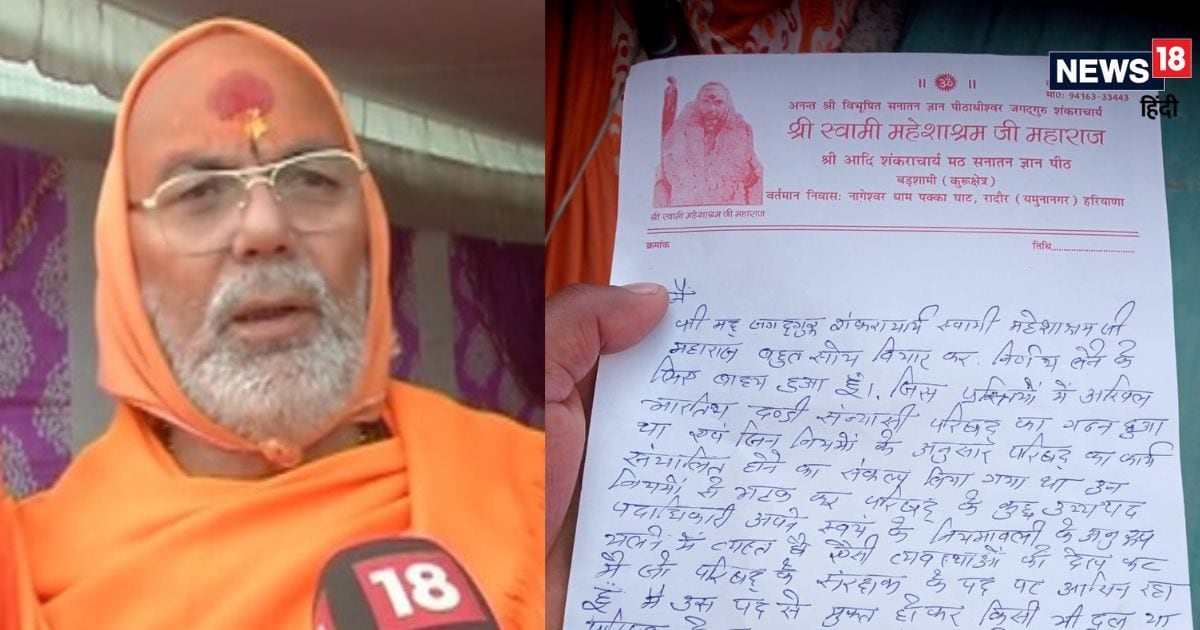 NEWS 18
हिंदी
18
|| ॐ ||
मो0: 94163-33443
अनन्त श्री विभूषित सनातन ज्ञान पीठाधीश्वर जगद्गुरु शंकराचार्य
श्री स्वामी महेशाश्रम जी महाराज
श्री आदि शंकराचार्य मठ सनातन ज्ञान पीठ
बड़शामी (कुरूक्षेत्र)
वर्तमान निवासः नागेश्वर धाम पक्का घाट, रादौर (यमुनानगर) हरियाणा
श्री स्वामी महेशाश्रम जी महाराज
क्रमांक
तिथि..............................
मैं
जगद्गुरू शंकराचार्य स्वामी महेशाश्रम जी
महाराज बहुत सोच विचार कर निर्णय लेने के
लिए बाध्य हुआ हूँ। जिस में अखिल
भारतिय दण्डी संन्यासी परिषद् का गठन हुआ
था एवं जिन नियमों के अनुसार परिषद् का कार्य
संचालित होने का संकल्प लिया गया था उन
नियमों से भटक कर परिषद् के कुछ उच्च पद
पदाधिकारी अपने स्वयं के नियमावली के अनुरूप
चलाने में व्यस्त है ऐसी व्यवस्थाओं को देख कर
मैं जो परिषद् के संरक्षक के पद पर आसिन रहा
हूँ मैं उस पद से मुक्त होकर किसी भी दल या